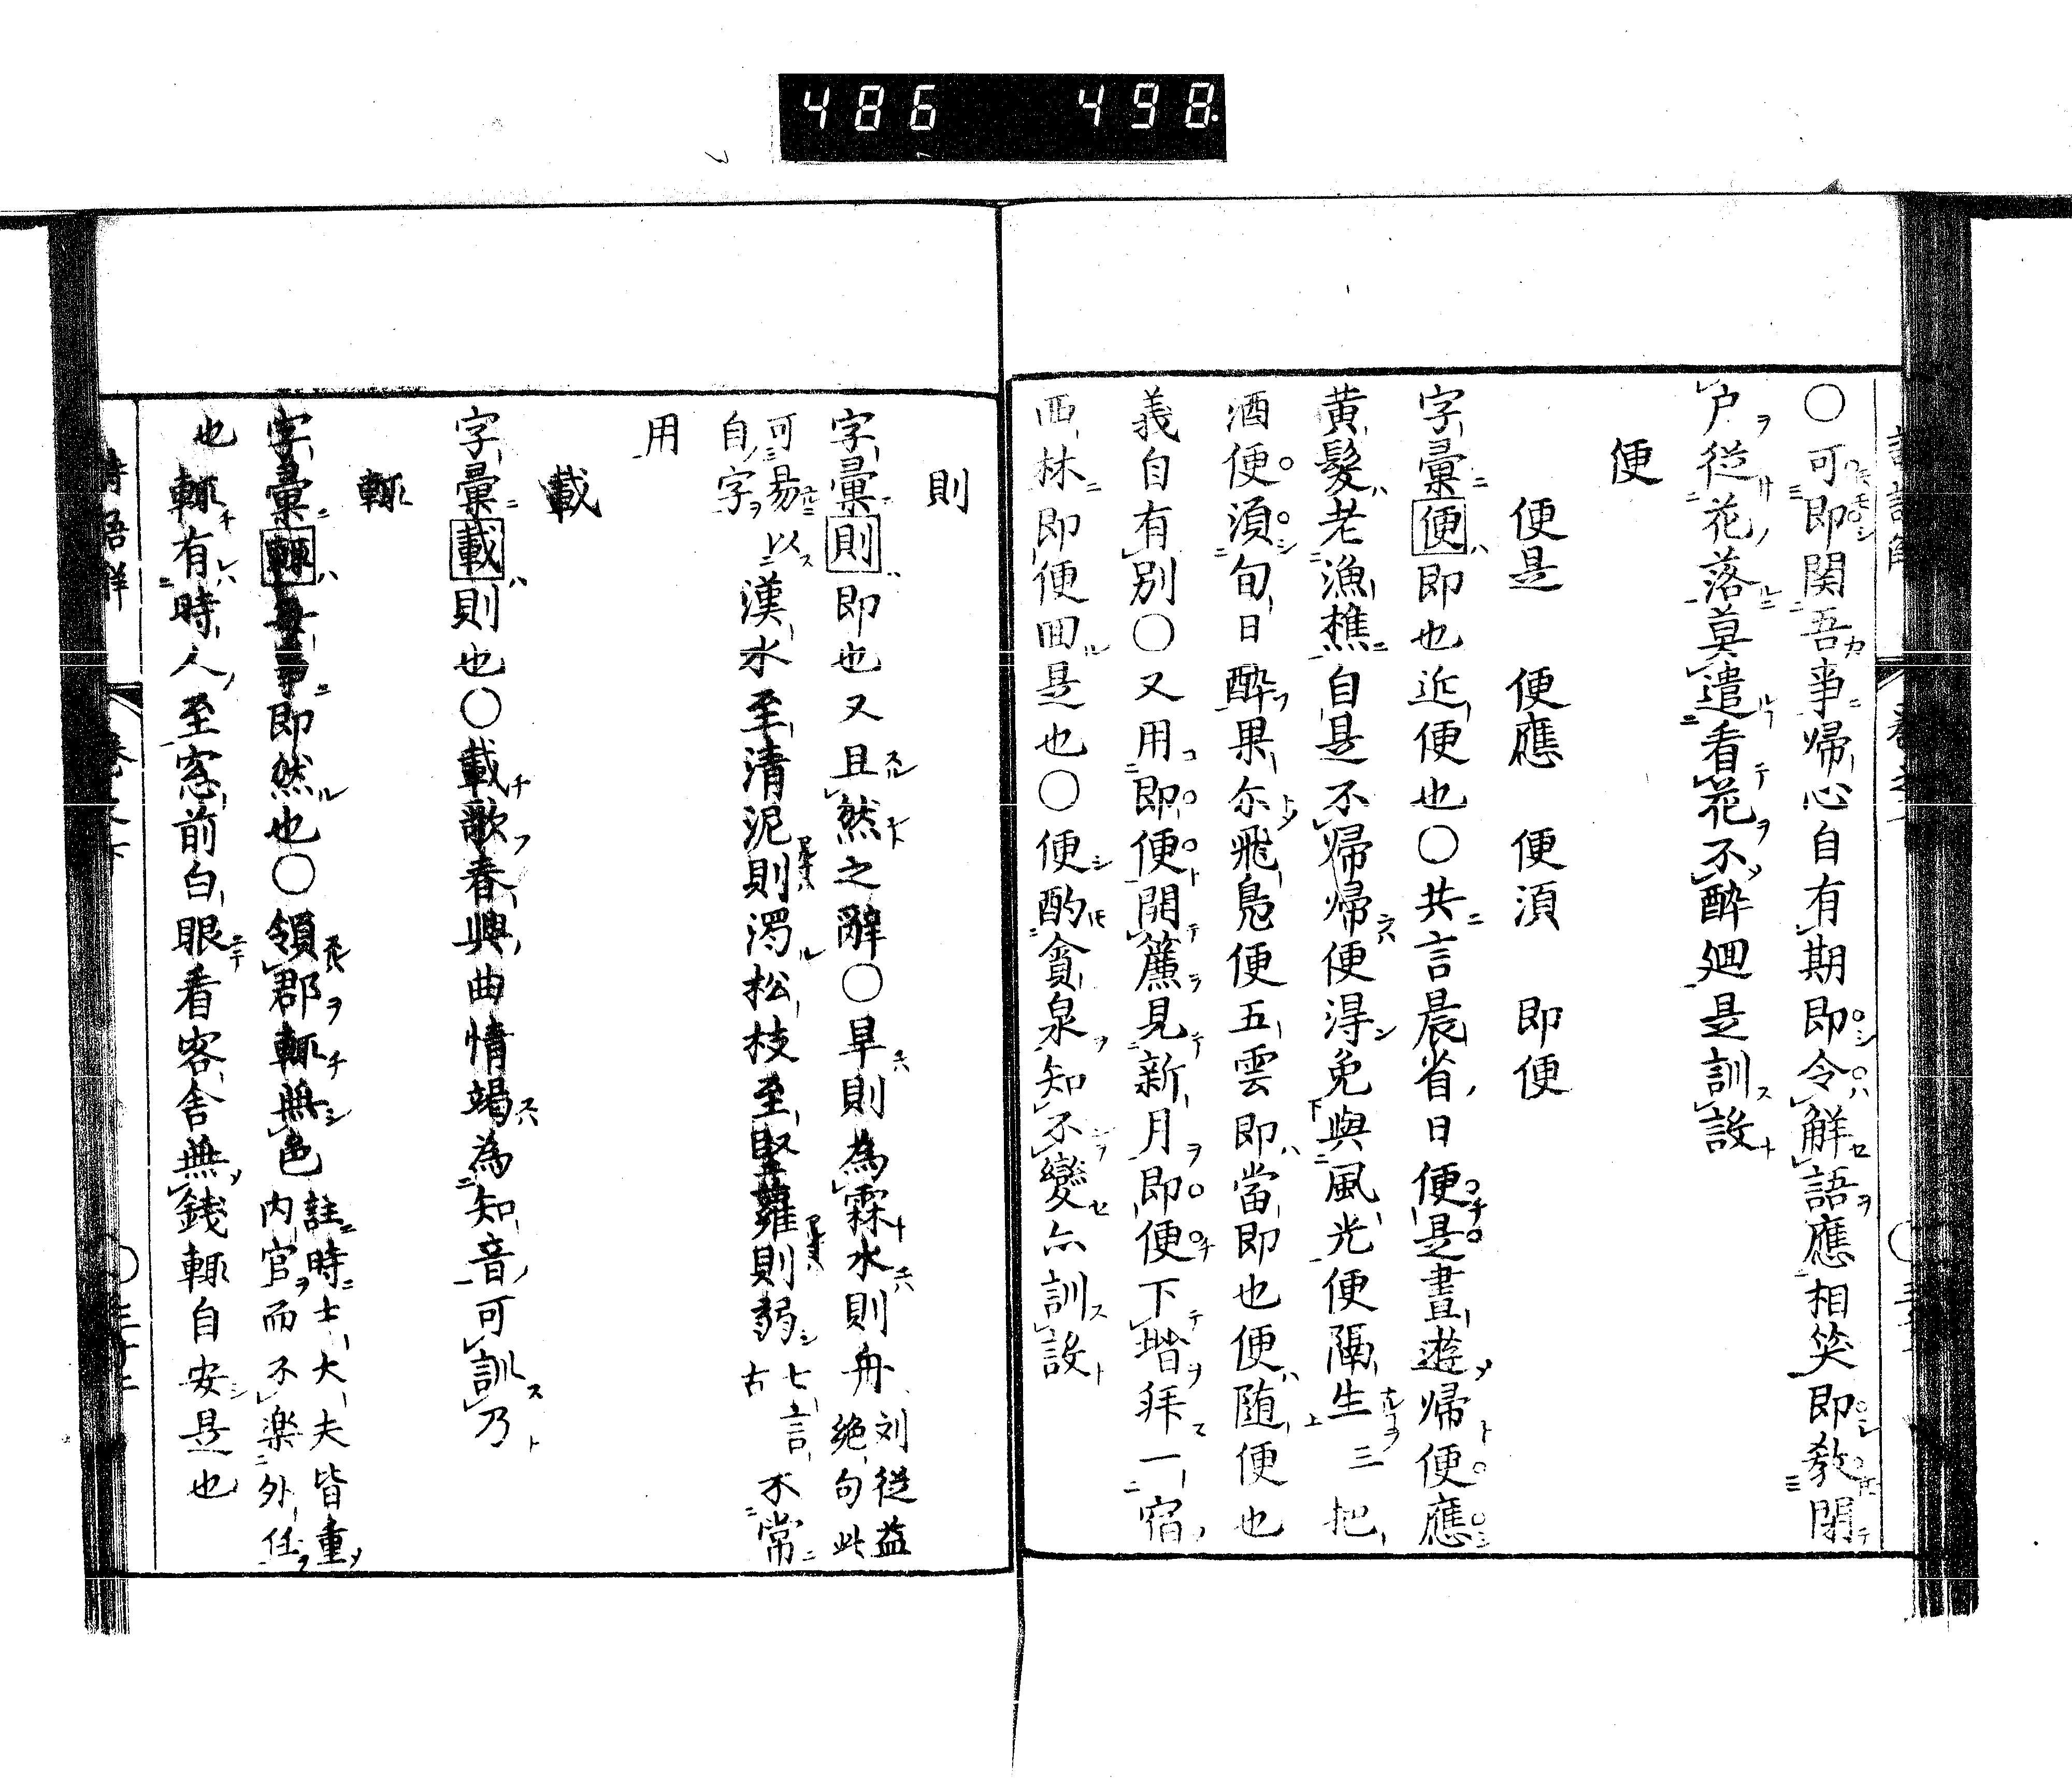 486 498
〇可即関吾事帰心自有期即令解語應相笑即教閉
戸従花落莫遣看花不酔廻是訓設
便
便是 便應 便須 即便
字彙便即也近便也〇共言晨省日便是晝遊帰便應
黄髮老漁樵自是不帰帰便得免與風光便隔生三把
酒便須旬日酔果尓飛鳧便五雲即當即也便随便也
義自有別〇又用即便開簾見新月即便下堦拜一宿
西林即便回是也〇便酌貪泉知不變亦訓設
則
字彙則即也又且然之辭〇旱則為霖水則舟刘從益
絶句此
可易以漢水至清泥則濁松枝至堅蘿則弱七言不常
自字古
用
載
字彙載則也〇載歌春興曲情竭為知音可訓乃
輙
字彙輙毎事即然也〇領郡輙無色註時士大夫皆重
内官而不楽外任
也輙有時人至窓前白眼看客舎無銭輙自安是也